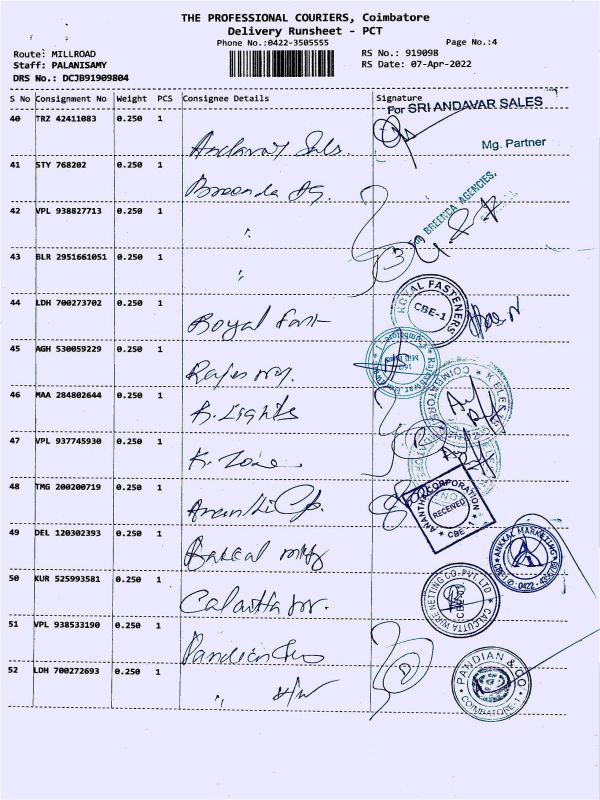 THE PROFESSIONAL COURIERS, Coimbatore
Delivery Runsheet - PCT
Phone No.:0422-3505555
Page No.:4
Route: MILLROAD
RS No.: 919098
Staff: PALANISAMY
RS Date: 07-Apr-2022
DRS No.: DCJB91909804
S No Consignment No Weight PCS Consignee Details Signature
For SRI ANDAVAR SALES
40 TRZ 42411083 0.250 1 Andavar Sales.
Mg. Partner
41 STY 768202 0.250 1 Breenda Ag.
For BREENDA AGENCIES,
42 VPL 938827713 0.250 1 "
43 BLR 2951661051 0.250 1 "
3
44 LDH 700273702 0.250 1 Royal Fast
ROYAL FASTENERS CBE-1
45 AGH 530059229 0.250 1
46 MAA 284802644 0.250 1 K. Lights
47 VPL 937745930 0.250 1 K. Zone
48 TMG 200200719 0.250 1 Ananthi Cp.
ANANTHI CORPORATION RECEIVED CBE-1
49 DEL 120302393 0.250 1
ANKKAL MARKETING
50 KUR 525993581 0.250 1 Calcutta wr.
CALCUTTA WIRE NETTING CO. PVT LTD CBE
51 VPL 938533190 0.250 1 Pandian &co
52 LDH 700272693 0.250 1 " H/W
2
PANDIAN & CO COIMBATORE-1